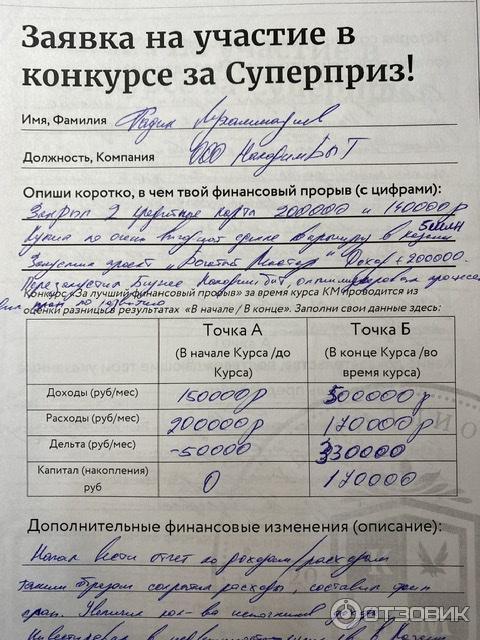 Заявка на участие в
конкурсе за Суперприз!
Имя, Фамилия Радик
Должность, Компания ООО НаходимБЫТ
Опиши коротко, в чем твой финансовый прорыв (с цифрами):
Закрыл 2 кредитные карты 200000 и 140000р
Купил по очень выгодной цене квартиру в Казани
5 млн
Запустил проект "Богатый Мастер" Доход +200000.
Перезапустил Бизнес оптимизировал процессы
план по развитию
Конкурс «За лучший финансовый прорыв» за время курса КМ проводится из
оценки разницы в результатах «В начале / В конце». Заполни свои данные здесь:
Точка А Точка Б
(В начале Курса /до (В конце Курса /во
Курса) время курса)
Доходы (руб/мес) 150000р 500000р
Расходы (руб/мес) 200000р 170000р
Дельта (руб/мес) -50000 330000
Капитал (накопления) 0 170000
руб
Дополнительные финансовые изменения (описание):
Начал вести отчет по доходам/расходам
таким образом сократил расходы, составил фин
план. Увеличил кол-во источников дохода
Инвестировал в
ОТЗОВИК